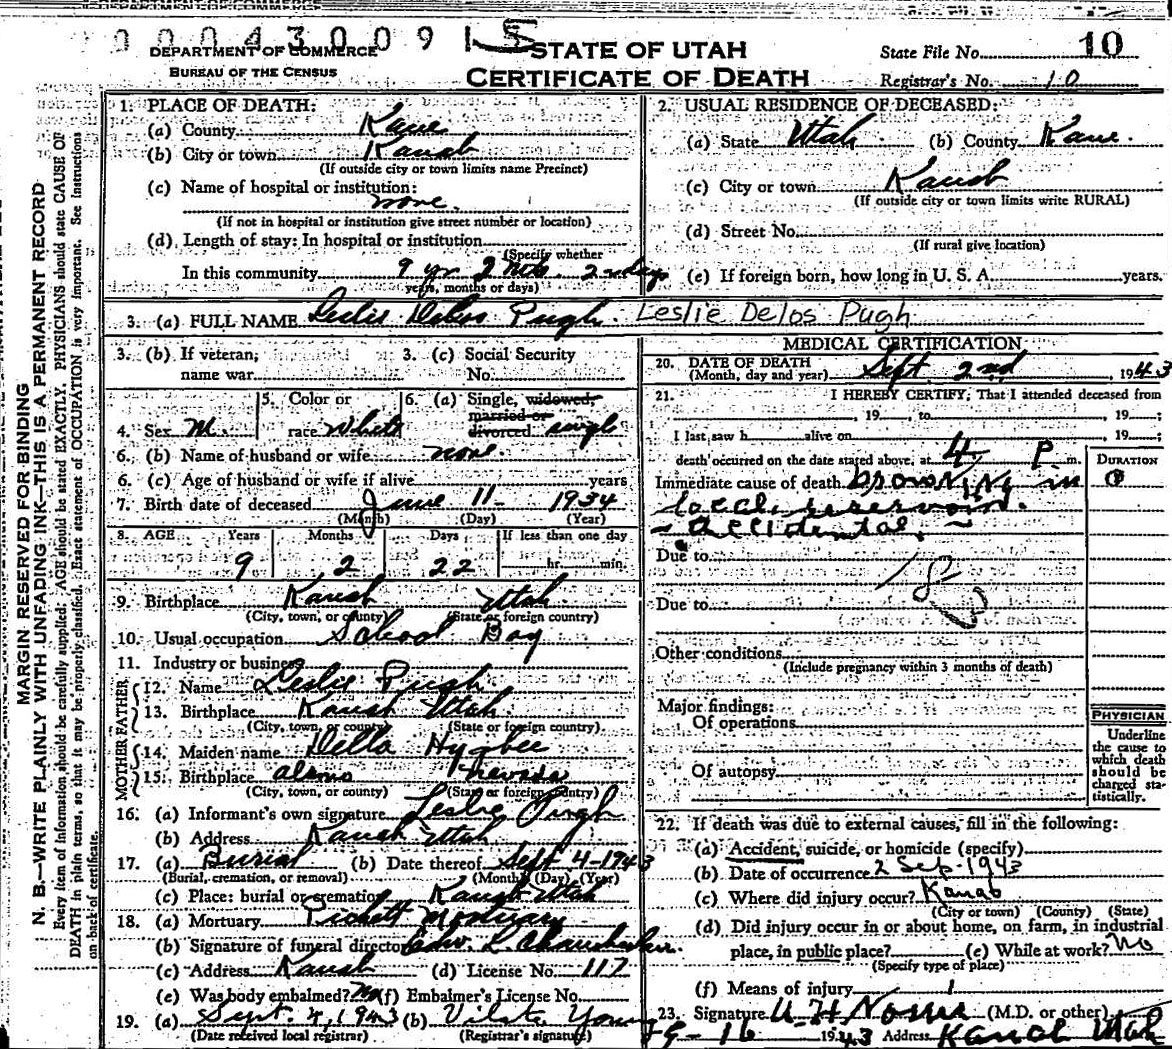 DEPARTMENT OF COMMERCE
0 0 0 4 3 0 0 9 1 5
DEPARTMENT OF COMMERCE
BUREAU OF THE CENSUS
STATE OF UTAH
CERTIFICATE OF DEATH
State File No. 10
Registrar's No. 10
MARGIN RESERVED FOR BINDING
N. B.—WRITE PLAINLY WITH UNFADING INK—THIS IS A PERMANENT RECORD
Every item of information should be carefully supplied. AGE should be stated EXACTLY. PHYSICIANS should state CAUSE OF
DEATH in plain terms, so that it may be properly classified. Exact statement of OCCUPATION is very important. See instructions
on back of certificate.
1. PLACE OF DEATH:
(a) County Kane
(b) City or town Kanab
(If outside city or town limits name Precinct)
(c) Name of hospital or institution:
none.
(If not in hospital or institution give street number or location)
(d) Length of stay: In hospital or institution
(Specify whether
In this community 9 yr 2 mos. 22 days
years, months or days)
2. USUAL RESIDENCE OF DECEASED:
(a) State Utah (b) County Kane.
(c) City or town Kanab
(If outside city or town limits write RURAL)
(d) Street No.
(If rural give location)
(e) If foreign born, how long in U. S. A. years.
3. (a) FULL NAME Leslie Delos Pugh. Leslie Delos Pugh
3. (b) If veteran, name war
3. (c) Social Security No.
4. Sex M.
5. Color or race White
6. (a) Single, widowed, married or divorced single
6. (b) Name of husband or wife none.
6. (c) Age of husband or wife if alive years
7. Birth date of deceased June 11- 1934
(Month) (Day) (Year)
8. AGE Years Months Days If less than one day
9 2 22 hr. min.
9. Birthplace Kanab Utah.
(City, town, or county) (State or foreign country)
10. Usual occupation School Boy
11. Industry or business
FATHER
12. Name Leslie Pugh
13. Birthplace Kanab Utah
(City, town, or county) (State or foreign country)
MOTHER
14. Maiden name Della Higbee
15. Birthplace Alamo Nevada
(City, town, or county) (State or foreign country)
16. (a) Informant's own signature Leslie Pugh
(b) Address Kanab Utah
17. (a) Burial (b) Date thereof Sept 4-1943
(Burial, cremation, or removal) (Month) (Day) (Year)
(c) Place: burial or cremation Kanab Utah
18. (a) Mortuary Mortuary
(b) Signature of funeral director Edw. L. Chamberlain.
(c) Address Kanab (d) License No. 117
(e) Was body embalmed? No (f) Embalmer's License No.
19. (a) Sept. 4, 1943 (b) Young
(Date received local registrar) (Registrar's signature)
MEDICAL CERTIFICATION
20. DATE OF DEATH
(Month, day and year) Sept. 2nd, 1943
21. I HEREBY CERTIFY, That I attended deceased from
, 19 , to , 19 ;
I last saw h alive on , 19 ;
death occurred on the date stated above, at 4 P. m.
DURATION
Immediate cause of death Drowning in
local reservoir.
- accidental. -
Due to
Due to
Other conditions
(Include pregnancy within 3 months of death)
Major findings:
Of operations
Of autopsy
PHYSICIAN
Underline
the cause to
which death
should be
charged sta-
tistically.
22. If death was due to external causes, fill in the following:
(a) Accident, suicide, or homicide (specify)
(b) Date of occurrence 2 Sep-1943
(c) Where did injury occur? Kanab
(City or town) (County) (State)
(d) Did injury occur in or about home, on farm, in industrial
place, in public place? (e) While at work? No
(Specify type of place)
(f) Means of injury
23. Signature (M.D. or other)
9-16 1943 Address Kanab Utah